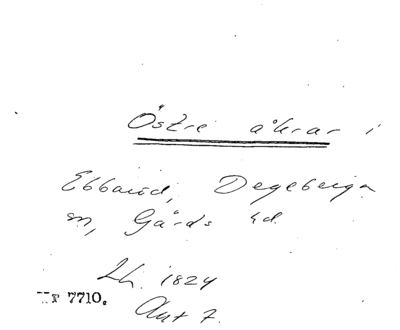 Östre åkrar i
Ebbaröd, Degeberga
sn, Gärds hd.
Lh. 1824
7710.
Akt 7.